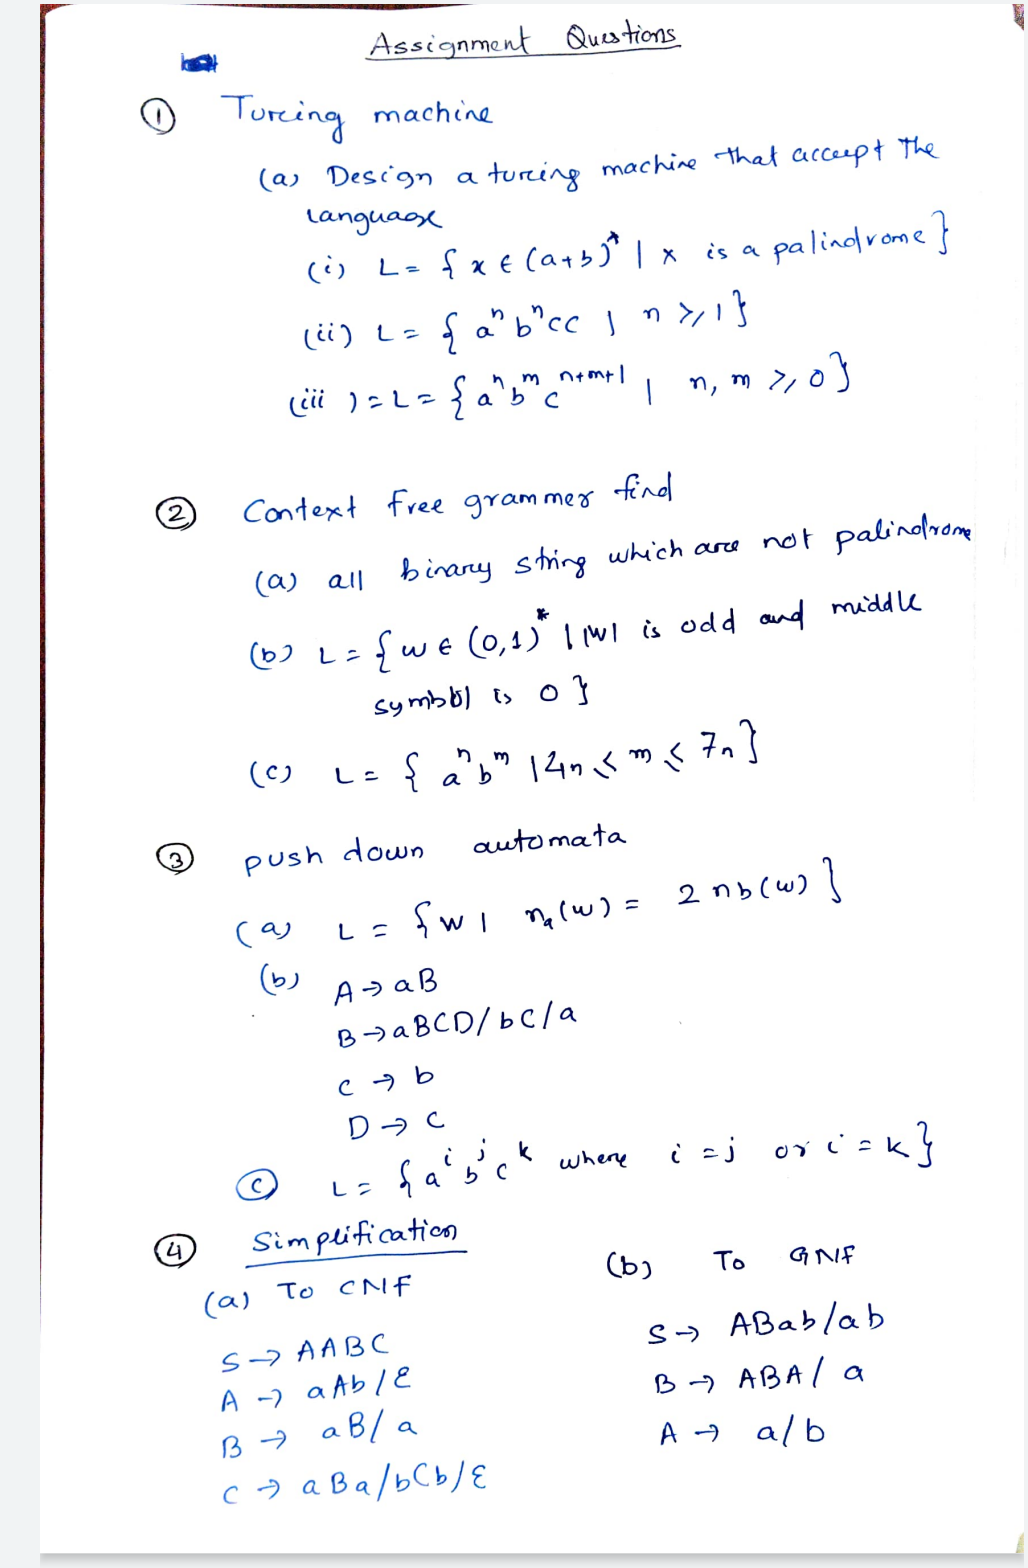 Assignment Questions
① Turing machine
(a) Design a turing machine that accept the
language
(i) L = { x ∈ (a+b)* | x is a palindrome }
(ii) L = { aⁿbⁿcc | n ≥ 1 }
(iii) = L = { aⁿbᵐcⁿ⁺ᵐ⁺¹ | n, m ≥ 0 }
② Context free grammer find
(a) all binary string which are not palindrome
(b) L = { w ∈ (0,1)* | |w| is odd and middle
symbol is 0 }
(c) L = { aⁿbᵐ | 4n ≤ m ≤ 7n }
③ push down automata
(a) L = { w | nₐ(w) = 2 nb(w) }
(b) A → aB
B → aBCD/bC/a
C → b
D → C
ⓒ L = { aⁱbʲcᵏ where i = j or i = k }
④ Simplification
(a) To CNF
S → AABC
A → aAb/ε
B → aB/a
C → aBa/bCb/ε
(b) To GNF
S → ABab/ab
B → ABA/a
A → a/b